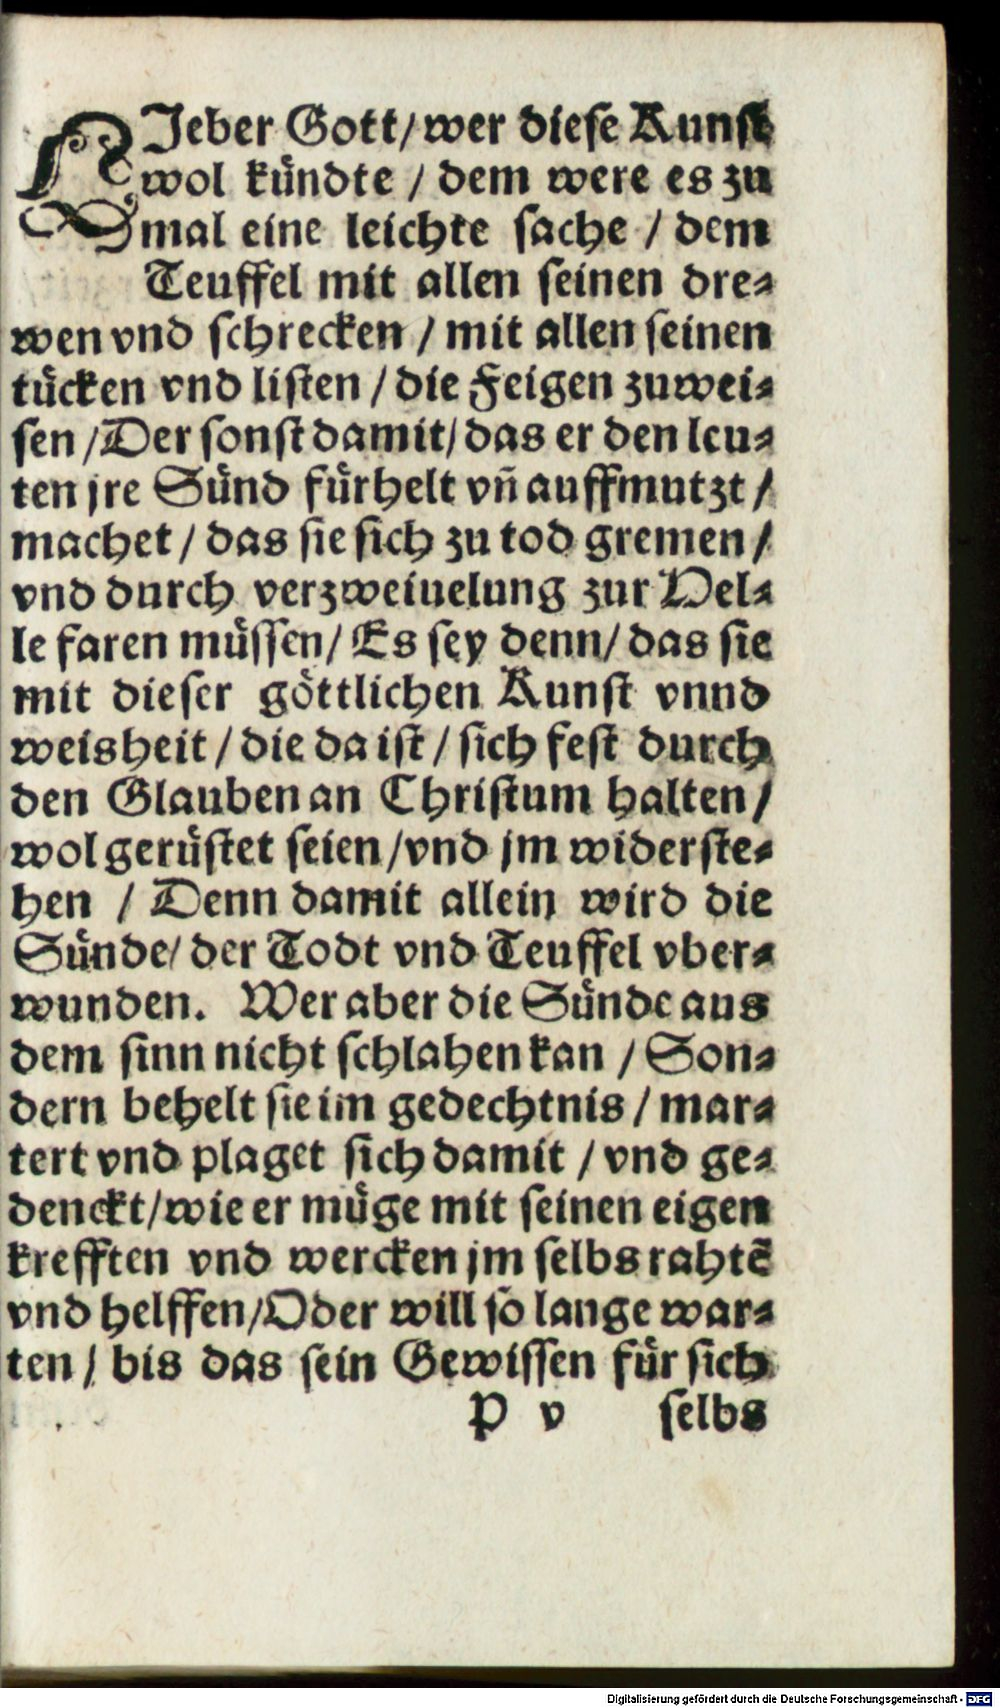 LIeber Gott/ wer diese Kunst
wol kündte / dem were es zu
mal eine leichte sache / dem
Teuffel mit allen seinen dre-
wen vnd schrecken / mit allen seinen
tücken vnd listen / die Feigen zuwei-
sen / Der sonst damit/ das er den leu-
ten jre Sünd fürhelt vñ auffmutzt /
machet / das sie sich zu tod gremen /
vnd durch verzweiuelung zur Hel-
le faren müssen/ Es sey denn/ das sie
mit dieser göttlichen Kunst vnnd
weisheit / die da ist / sich fest durch
den Glauben an Christum halten /
wol gerüstet seien / vnd jm widerste-
hen / Denn damit allein wird die
Sünde/ der Todt vnd Teuffel vber-
wunden. Wer aber die Sünde aus
dem sinn nicht schlahen kan / Son-
dern behelt sie im gedechtnis / mar-
tert vnd plaget sich damit / vnd ge-
denckt/ wie er müge mit seinen eigen
krefften vnd wercken jm selbs rahtē
vnd helffen/ Oder will so lange war-
ten / bis das sein Gewissen für sich
P v selbs
Digitalisierung gefördert durch die Deutsche Forschungsgemeinschaft - DFG